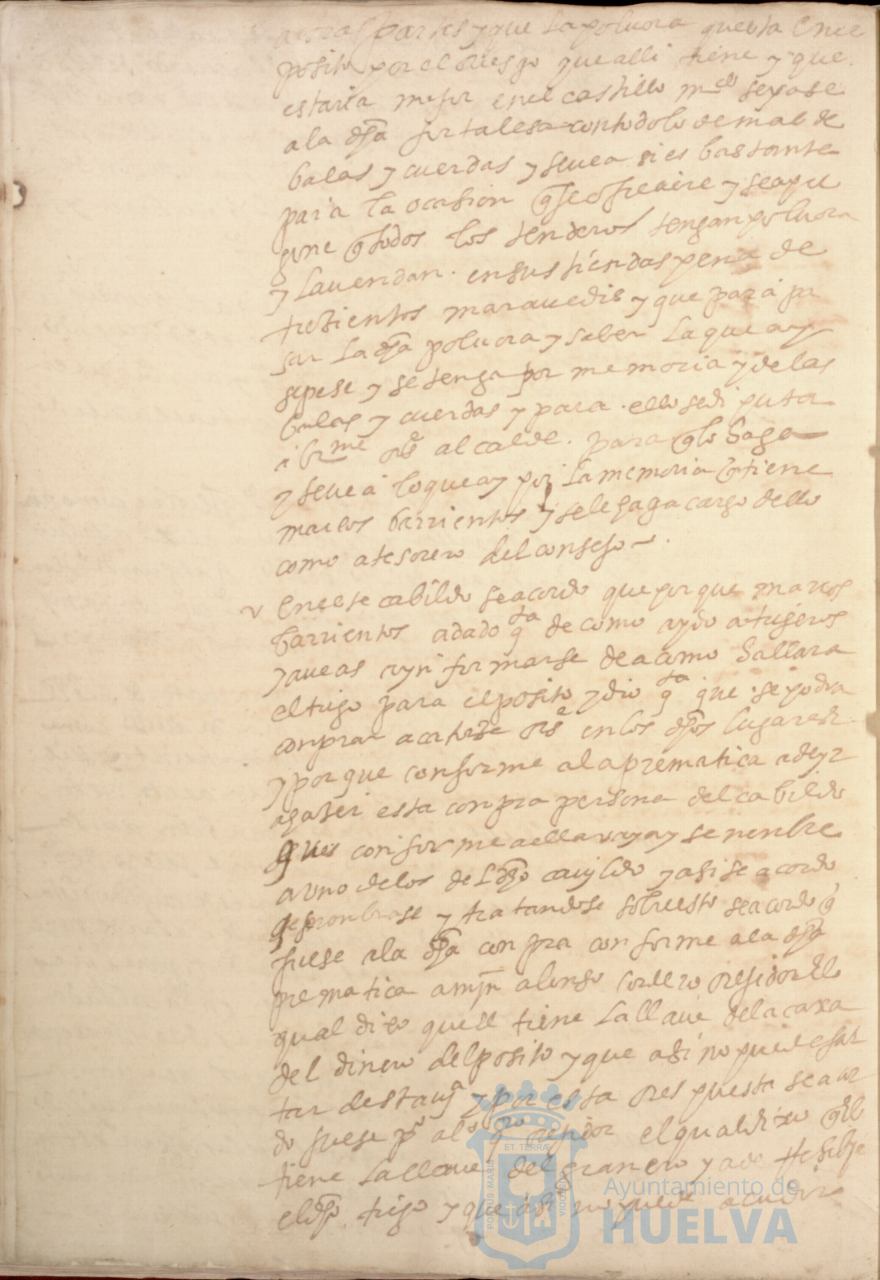 partes y que la polvora questa en el
posito por el riesgo que alli tiene y que
estaria mejor en el castillo mdo se pase
a la dha fortalesa con todo lo demas de
balas y cuerdas y se vea si es bastante
para la ocasion q se ofreciere y se apre
gone q todos los tenderos tengan polvora
y la vendan en sus tiendas pena de
tresientos maravedis y que para pe
sar la dha polvora y saber la que ay
se pese y se tenga por memoria y de las
balas y cuerdas y para ello se diputa
a alcalde para q lo haga
y se vea lo que ay por la memoria q tiene
marcos barrientos y se le haga cargo dello
como a tesorero del consejo
v En este cabildo se acordo que porque marcos
barrientos a dado qta de como a ydo a trigeros
y a veas a ynformarse de a como hallara
el trigo para el posito y dio qta que se podra
conprar a catorze Rs en los dhos lugares
y porque conforme a la prematica a de yr
a hazer esta conpra persona del cabildo
ques conforme a ella vaya y se nenbre
a uno de los del dho cavildo y asi se acordo
se nonbrase y tratandose sobre esto se acordo q
fuese a la dha conpra conforme a la dha
prematica a mjn alonso Regidor el
qual dixo quel tiene la llave de la caxa
del dinero del posito y que asi no puede fal
tar desta va y por esta respuesta se acor
do fuese po alo regidor el qual dixo quel
tiene la llave del granero y a de Resebir
el dho trigo y que asi no puede acudir
Ayuntamiento de
HUELVA
PORTUS MARIS
ET TERRAE
CUSTODIA